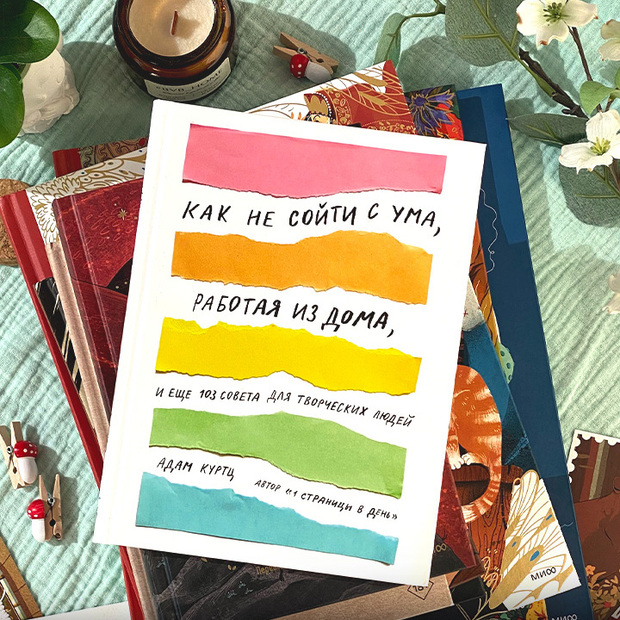 КАК НЕ СОЙТИ С УМА,
РАБОТАЯ ИЗ ДОМА,
И ЕЩЕ 103 СОВЕТА ДЛЯ ТВОРЧЕСКИХ ЛЮДЕЙ
АДАМ КУРТЦ
АВТОР «1 СТРАНИЦЫ В ДЕНЬ»
МИФ
МИФ